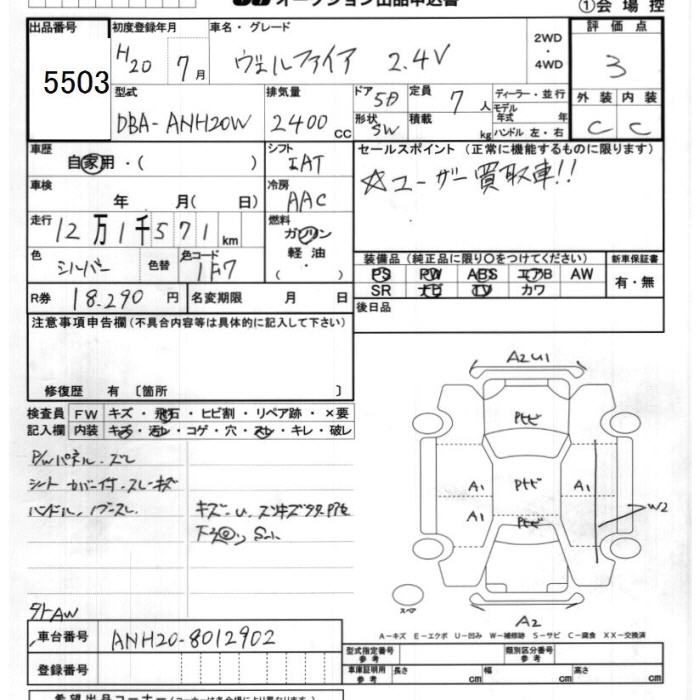 オークション出品申込書
①会場控
出品番号
5503
初度登録年月
H20 7月
車名・グレード
ヴェルファイア 2.4V
2WD
・
4WD
評価点
3
型式
DBA-ANH20W
排気量
2400 CC
ドア 5D
形状 SW
定員 7 人
積載 kg
ディーラー・並行
モデル年式 年
ハンドル 左・右
外装 内装
C C
車歴
自家用・( )
シフト
IAT
セールスポイント (正常に機能するものに限ります)
☆ユーザー買取車!!
車検
年 月( 日)
冷房
AAC
走行
12万1千571km
燃料
ガソリン
軽油
・
( )
色
シルバー
色替
色コード
1F7
装備品 (純正品に限り○をつけてください)
新車保証書
PS PW ABS エアB AW
SR ナビ TV カワ
有・無
R券 18.290 円
名変期限 月 日
後日品
注意事項申告欄(不具合内容等は具体的に記入して下さい)
修復歴 有 〔箇所 〕
検査員
記入欄
FW キズ・飛石・ヒビ割・リペア跡・×要
内装 キズ・汚レ・コゲ・穴・スレ・キレ・破レ
P/Wパネル・ズレ
シート カバー付・スレ・キズ
ハンドル・ノブ・スレ
外AW
A2U1
Ptヒ
A1
Ptヒ
A1
A1
W2
Ptヒ
スペア
A2
A-キズ E-エクボ U-凹み W-補修跡 S-サビ C-腐食 XX-交換済
車台番号 ANH20-8012902
登録番号
型式指定番号
参考
類別区分番号
参考
車庫証明用
参考
長さ cm
幅 cm
高さ cm
希望出品コーナー